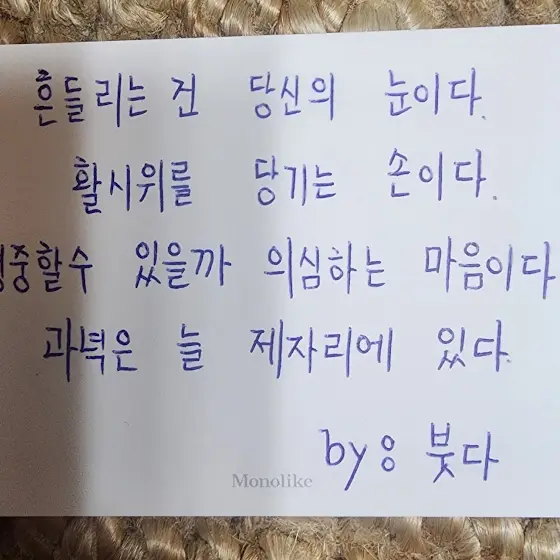 흔들리는 건 당신의 눈이다.
활시위를 당기는 손이다.
명중할수 있을까 의심하는 마음이다
과녁은 늘 제자리에 있다.
by: 붓다
Monolike